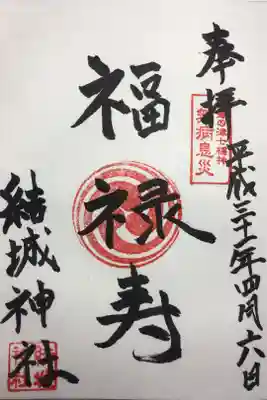 奉拝
平成三十一年四月六日
無病息災
福禄寿
結城神社